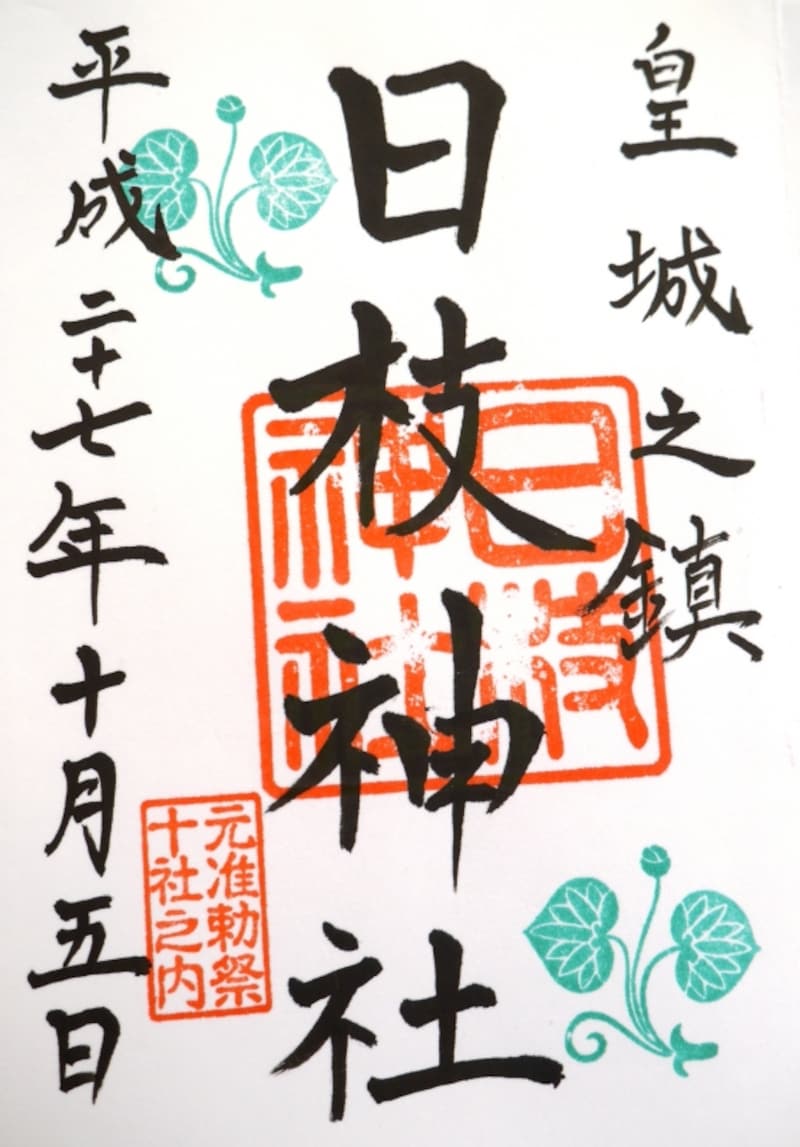 皇城之鎮
日枝神社
日枝
神社
元准勅祭
十社之内
平成二十七年十月五日